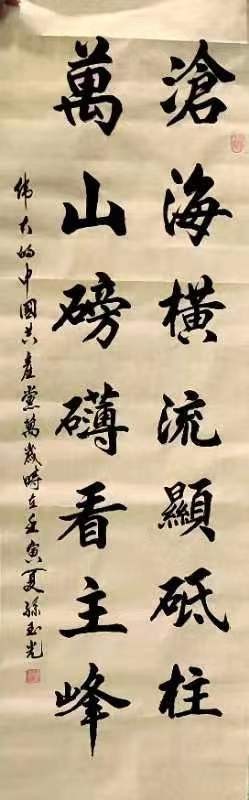 滄海橫流顯砥柱
萬山磅礴看主峰
偉大的中國共產黨萬歲時在壬寅夏孫玉光